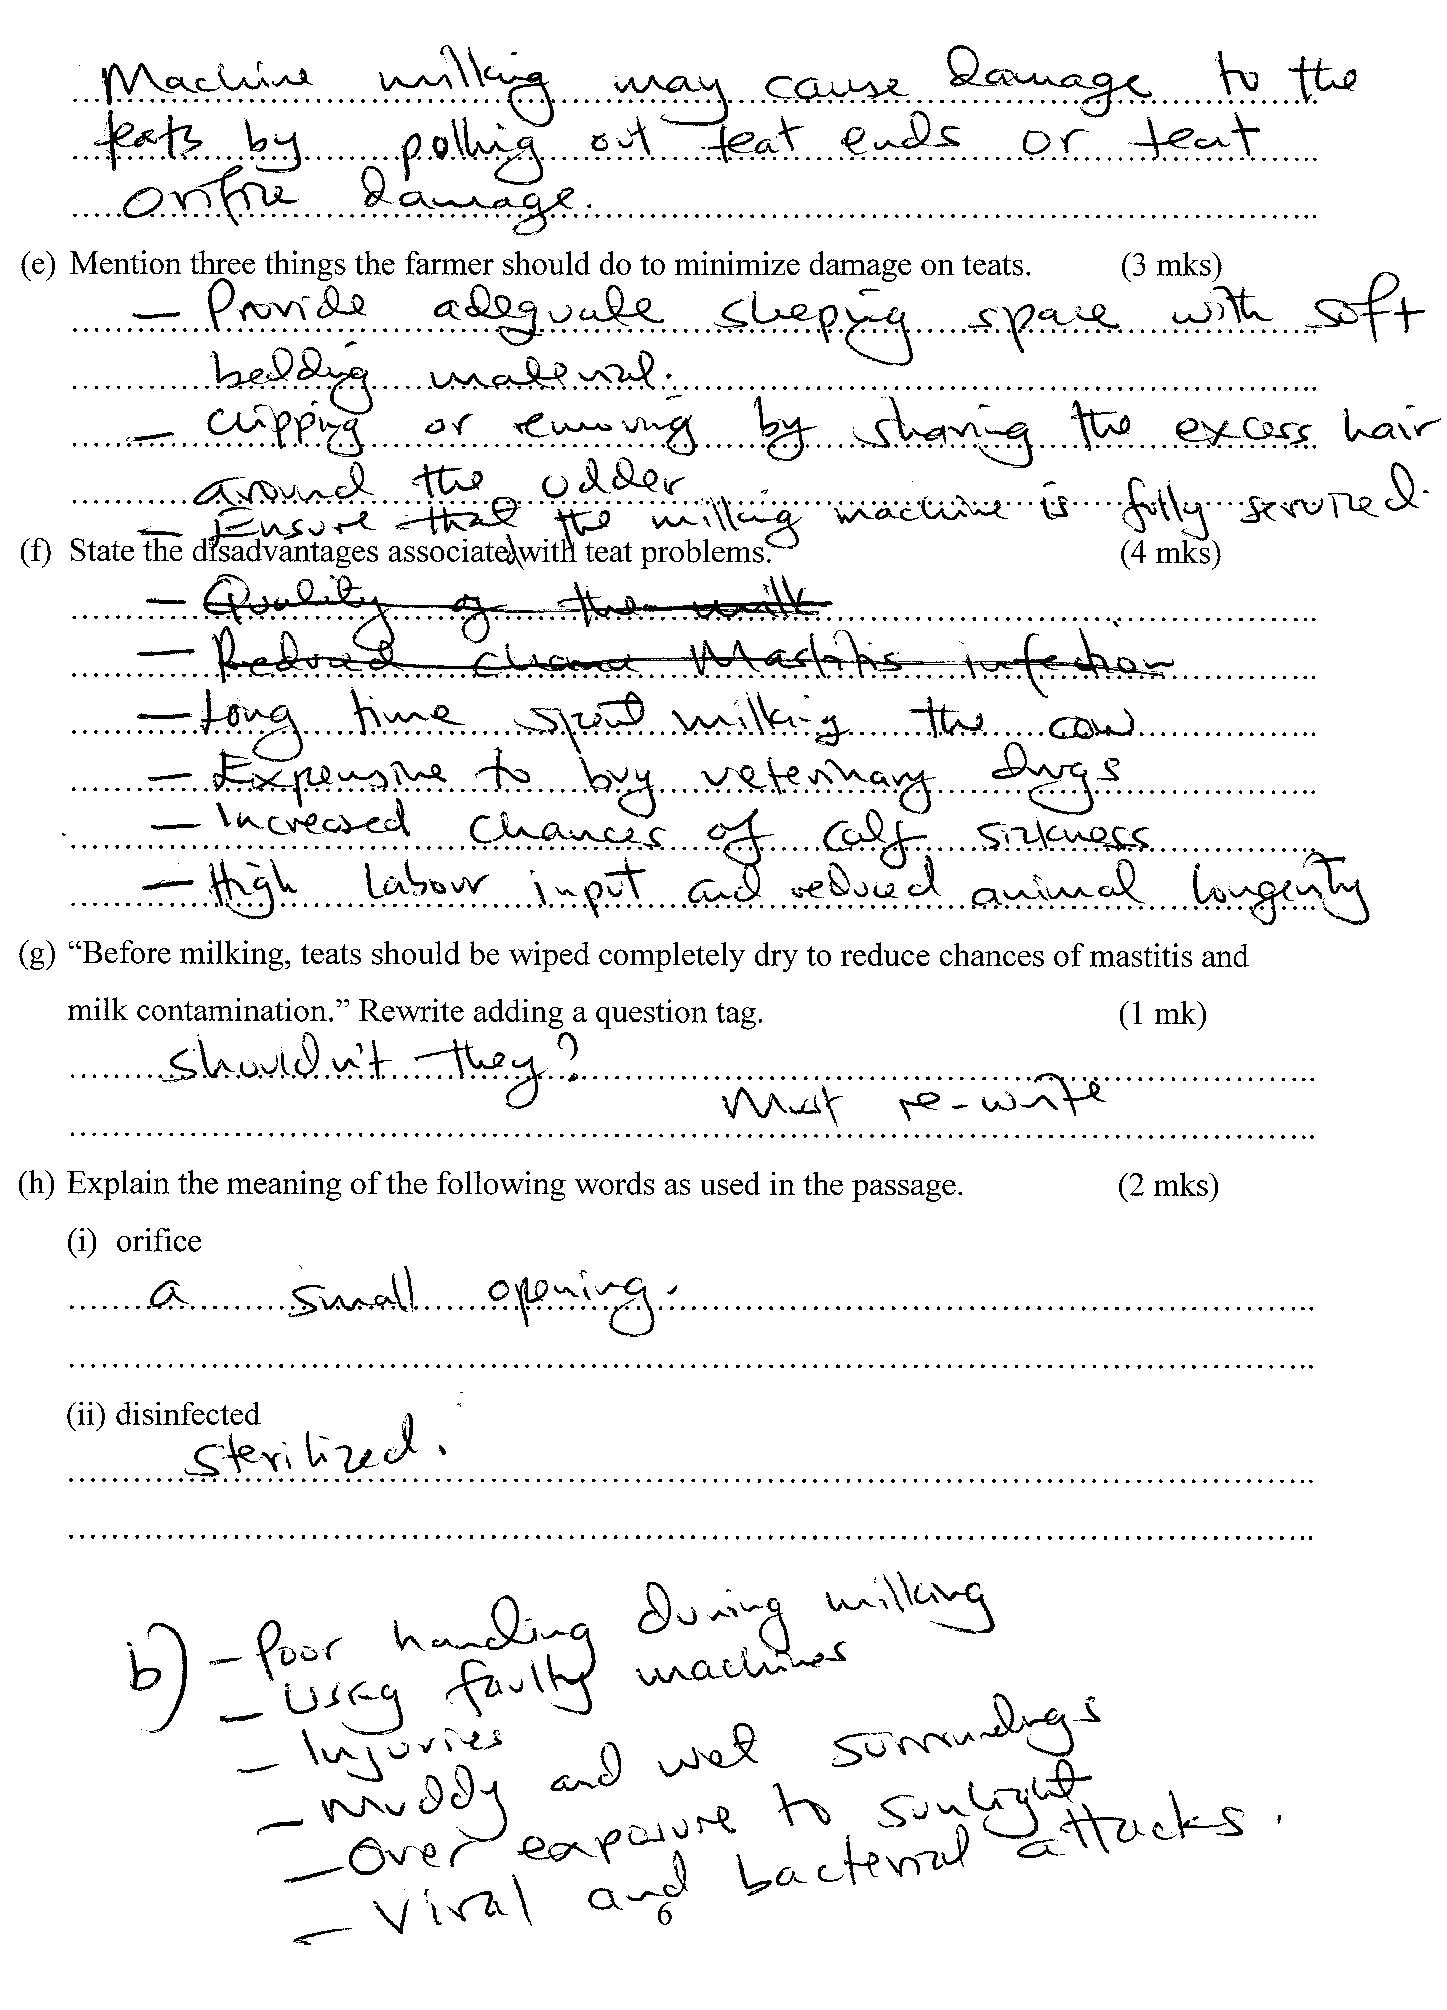 Machine milking may cause damage to the
teats by polling out teat ends or teat
orifice damage.
(e) Mention three things the farmer should do to minimize damage on teats. (3 mks)
— Provide adequate sleeping space with soft
bedding material.
— Clipping or removing by sharing the excess hair
around the udder
— Ensure that the milking machine is fully serviced.
(f) State the disadvantages associated with teat problems. (4 mks)
— Quality of the milk
— Reduced chance Mastitis infection
— Long time spent milking the cow
— Expensive to buy veterinary drugs
— Increased chances of calf sickness
— High labour input and reduced animal longevity
(g) “Before milking, teats should be wiped completely dry to reduce chances of mastitis and
milk contamination.” Rewrite adding a question tag. (1 mk)
shouldn't they?
Must re-write
(h) Explain the meaning of the following words as used in the passage. (2 mks)
(i) orifice
a small opening.
(ii) disinfected
sterilized.
b) - Poor handling during milking
- Using faulty machines
- Injuries
- Muddy and wet surroundings
- Over exposure to sunlight
- Viral and bacterial attacks.
6